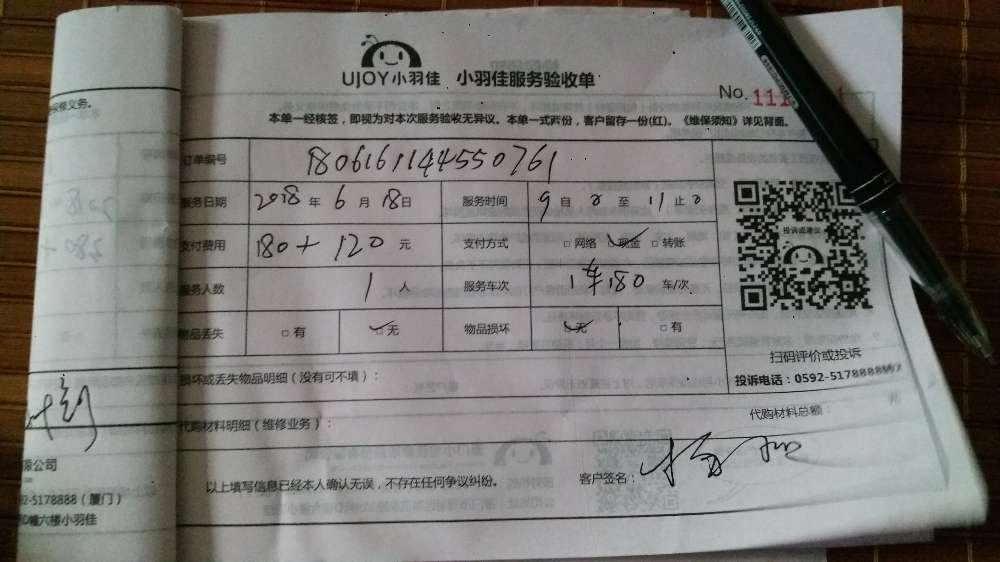 UJOY小羽佳 小羽佳服务验收单
No. 111
本单一经核签，即视为对本次服务验收无异议。本单一式两份，客户留存一份(红)。《维保须知》详见背面。
订单编号 180616114450761
服务日期 2018 年 6 月 18日 服务时间 9 自 至 11 止
支付费用 180+120 元 支付方式 □网络 □现金 □转账
服务人数 1 人 服务车次 1车180 车/次
物品丢失 □有 □无 物品损坏 □无 □有
投诉或建议
扫码评价或投诉
投诉电话：0592-5178888
损坏或丢失物品明细（没有可不填）：
代购材料明细（维修业务）： 代购材料总额：
以上填写信息已经本人确认无误，不存在任何争议纠纷。 客户签名：
修义务。
限公司
92-5178888（厦门）
幢六楼小羽佳